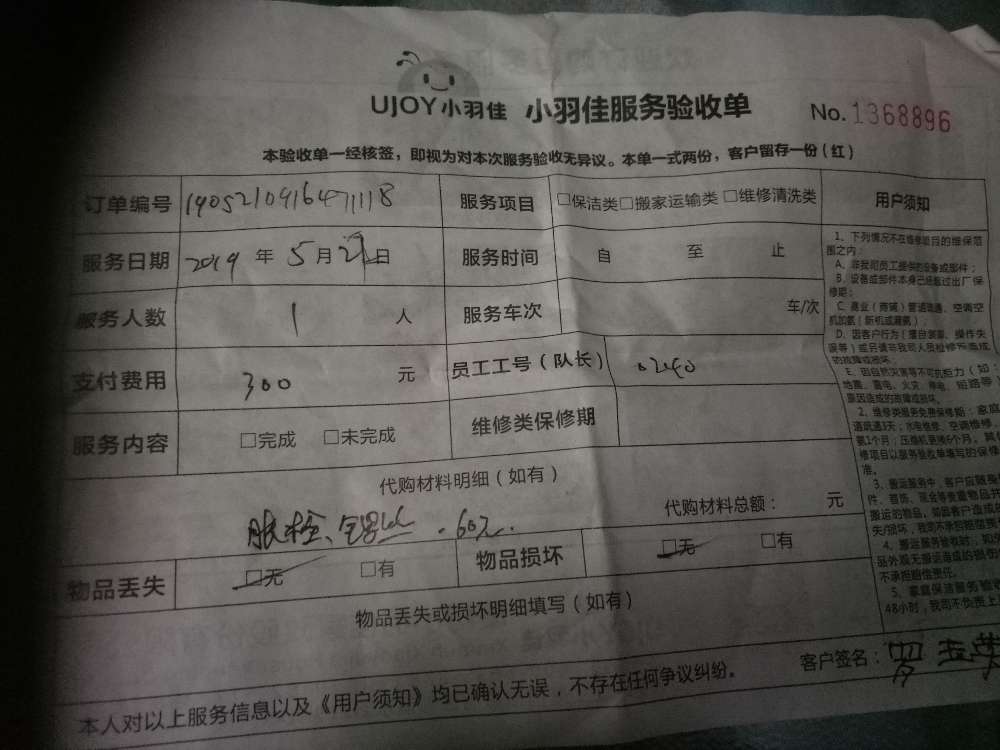 UJOY小羽佳 小羽佳服务验收单 No.1368896
本验收单一经核签，即视为对本次服务验收无异议。本单一式两份，客户留存一份（红）
订单编号 190521091647118 服务项目 □保洁类□搬家运输类 □维修清洗类 用户须知
服务日期 2019 年 5 月 日 服务时间 自 至 止
服务人数 1 人 服务车次 车/次
支付费用 300 元 员工工号（队长） 02140
服务内容 □完成 □未完成 维修类保修期
代购材料明细（如有）
代购材料总额： 元
60元.
物品丢失 □无 □有 物品损坏 □无 □有
物品丢失或损坏明细填写（如有）
客户签名：罗
本人对以上服务信息以及《用户须知》均已确认无误，不存在任何争议纠纷。
1、下列情况不在维修项目的维保范
围之内
A、非我司员工提供的设备或部件；
B、设备或部件本身已经超过出厂保
修期；
C、商业（商铺）管道疏通、空调空
机加氨（新机或漏氨）；
D、因客户行为（擅自装窜、操作失
E、因自然灾害等不可抗拒力（如：
地震、雷电、火灾、停电、短路等
原因造成的故障或损坏。
2、维修类服务免费保修期：家庭
道疏通3天；水电维修、空调维修，
氨1个月；压缩机更换6个月。其
修项目以服务验收单填写的保修
准。
3、搬运服务中，客户应随身
件、首饰、现金等贵重物品并
搬运的物品，如因客户造成
失/损坏，我司不承担赔偿责
4、搬运服务验收时，如
品外观无搬运造成的损伤
不承担赔偿责任。
5、家庭保洁服务验收
48小时，我司不负责上